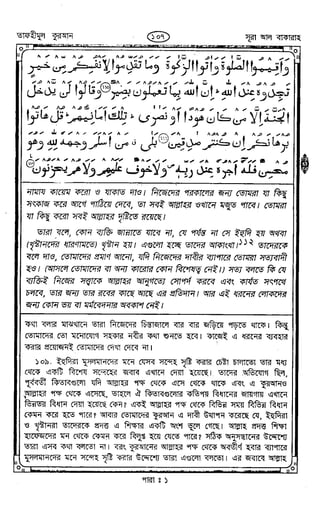 তাফহীমুল কুরআন
১০৭
সূরা আল বাকারাহ
وَأَقِيمُوا الصَّلٰوةَ وَآتُوا الزَّكٰوةَ ۚ وَمَا تُقَدِّمُوا لِأَنفُسِكُم مِّنْ خَيْرٍ
تَجِدُوهُ عِندَ اللَّهِ ۗ إِنَّ اللَّهَ بِمَا تَعْمَلُونَ بَصِيرٌ ۝ وَقَالُوا لَن يَدْخُلَ
الْجَنَّةَ إِلَّا مَن كَانَ هُودًا أَوْ نَصٰرٰى ۗ تِلْكَ أَمَانِيُّهُمْ ۗ قُلْ هَاتُوا
بُرْهَانَكُمْ إِن كُنتُمْ صٰدِقِينَ ۝ بَلٰى ۚ مَنْ أَسْلَمَ وَجْهَهُ لِلَّهِ وَهُوَ
مُحْسِنٌ فَلَهُ أَجْرُهُ عِندَ رَبِّهِ وَلَا خَوْفٌ عَلَيْهِمْ وَلَا هُمْ يَحْزَنُونَ
নামায কায়েম করো ও যাকাত দাও। নিজেদের পরকালের জন্য তোমরা যা কিছু
সৎকাজ করে আগে পাঠিয়ে দেবে, তা সবই আল্লাহর ওখানে মজুত পাবে। তোমরা
যা কিছু করো সবই আল্লাহর দৃষ্টিতে রয়েছে।
তারা বলে, কোন ব্যক্তি জান্নাতে যাবে না, যে পর্যন্ত না সে ইহুদি হয় অথবা
(খৃস্টানদের ধারণামতে) খৃস্টান হয়। এগুলো হচ্ছে তাদের আকাংখা।১১২ তাদেরকে
বলে দাও, তোমাদের প্রমাণ আনো, যদি নিজেদের দাবীর ব্যাপারে তোমরা সত্যবাদী
হও। (আসলে তোমাদের বা অন্য কারোর কোন বিশেষত্ব নেই।) সত্য বলতে কি যে
ব্যক্তিই নিজের সত্তাকে আল্লাহর আনুগত্যে সোপর্দ করবে এবং কার্যত সৎপথে
চলবে, তার জন্য তার রবের কাছে আছে এর প্রতিদান। আর এই ধরনের লোকদের
জন্য কোন ভয় বা মর্মবেদনার অবকাশ নেই।
কথা বলার মাঝখানে তারা নিজেদের চিন্তাজালে বার বার জড়িয়ে পড়তে থাকে। কিন্তু
তোমাদের তো মনোযোগ সহকারে নবীর কথা শুনতে হবে। কাজেই এ ধরনের ব্যবহার
করার প্রয়োজনই তোমাদের দেখা দেবে না।
১০৯. ইহুদিরা মুসলমানদের মনে যেসব সন্দেহ সৃষ্টি করার চেষ্টা চালাতো তার মধ্য
থেকে একটি বিশেষ সন্দেহের জবাব এখানে দেয়া হয়েছে। তাদের অভিযোগ ছিল,
পূর্ববর্তী কিতাবগুলো যদি আল্লাহর পক্ষ থেকে এসে থেকে থাকে এবং এ কুরআনও
আল্লাহর পক্ষ থেকে এসেছে, তাহলে ঐ কিতাবগুলোর কতিপয় বিধানের জায়গায় এখানে
ভিন্নতর বিধান দেয়া হয়েছে কেন? একই আল্লাহর পক্ষ থেকে বিভিন্ন সময় বিভিন্ন বিধান
কেমন করে হতে পারে? আবার তোমাদের কুরআন এ দাবী উত্থাপন করেছে যে, ইহুদিরা
ও খৃস্টানরা তাদেরকে প্রদত্ত এ শিক্ষার একটি অংশ ভুলে গেছে। আল্লাহ প্রদত্ত শিক্ষা
হাফেজদের মন থেকে কেমন করে বিলুপ্ত হয়ে যেতে পারে? সঠিক অনুসন্ধানের উদ্দেশ্যে
তারা এসব কথা বলতো না। বরং কুরআনের আল্লাহর পক্ষ থেকে অবতীর্ণ হবার ব্যাপারে
মুসলমানদের মনে সন্দেহ সৃষ্টি করার উদ্দেশ্যে তারা এগুলো বলতো। এর জবাবে আল্লাহ
পারা ঃ ১